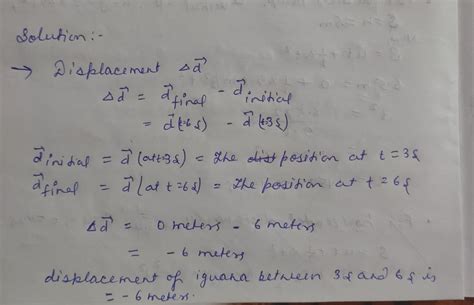 Solution:-
→ Displacement Δd⃗
Δd⃗ = d⃗ final - d⃗ initial
= d⃗(t=6s) - d⃗(t=3s)
d⃗ initial = d⃗(at t=3s) = The position at t = 3s
d⃗ final = d⃗(at t=6s) = The position at t = 6s
Δd⃗ = 0 meters - 6 meters
= - 6 meters
displacement of iguana between 3s and 6s is
= - 6 meters.